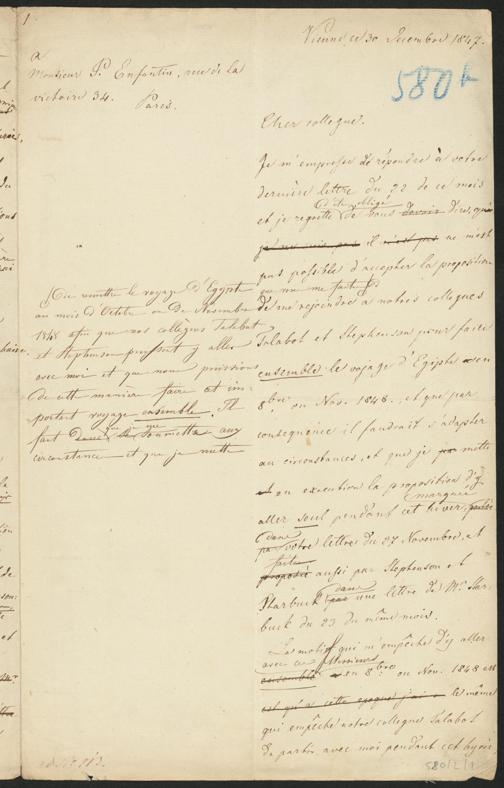 1
Vienne, ce 30 Decembre 1847.
a
Monsieur P. Enfantin, rue de la
victoire 34.
Paris.
580b
Cher collegue.
Je m'empresse de répondre à votre
dernière lettre du 22 de ce mois
d'être obligé
et je regrette de vous devoir dire, que
il n'est pas ne m'est
pas possible d'accepter la proposition
de me rejoindre a notres collegues
Talabot et Stephenson pour faire
ensemble le voyage d'Egipte en
8bre ou Nov. 1848., et que par
consequence il faudrait s'adapter
au circonstances, et que je mette
en execution la proposition d'y
marquée
aller seul pendant cet hiver,
dans
par votre lettre du 27 Novembre, et
faite
proposée aussi par Stephenson et
dans
Starbuck par une lettre de Mr. Star-
buck du 23 du même mois.
Le motif qui m'empêche d'y aller
avec ces Messieurs
ensemble en 8bre ou Nov. 1848 est
est qu'a cette epoque j'ai le même
qui empêche notre collegue Talabot
de partir avec moi pendant cet hyver
de remettre le voyage d'Egypte
au mois d'Octobre ou De Novembre
1848 afin que nos collegues Talabot
et Stephenson puissent y aller
avec moi et que nous puissions
de cette manière faire cet im-
portent voyage ensemble. Il
faut se soumettre aux
circonstance et que je mette
580/2/1